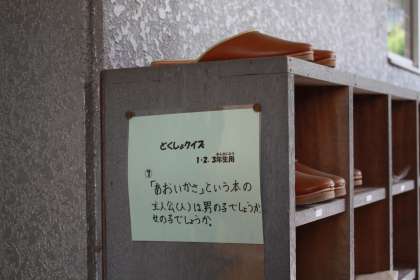 どくしょクイズ
1・2・3年生用
「あおいかさ」という本の
主人公(人)は男の子でしょうか
女の子でしょうか。